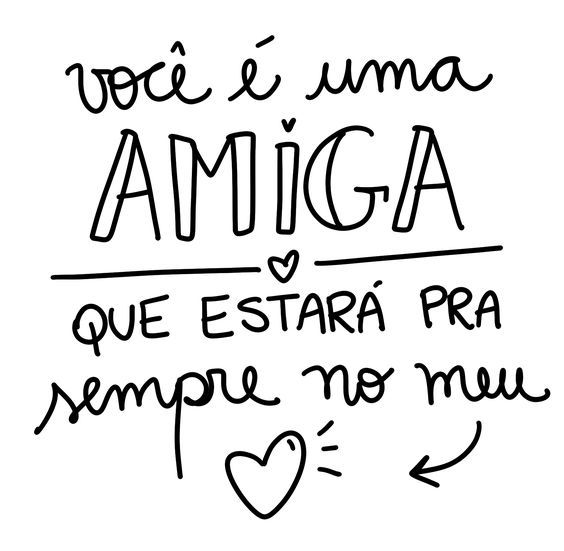 você é uma
AMIGA
QUE ESTARÁ PRA
sempre no meu